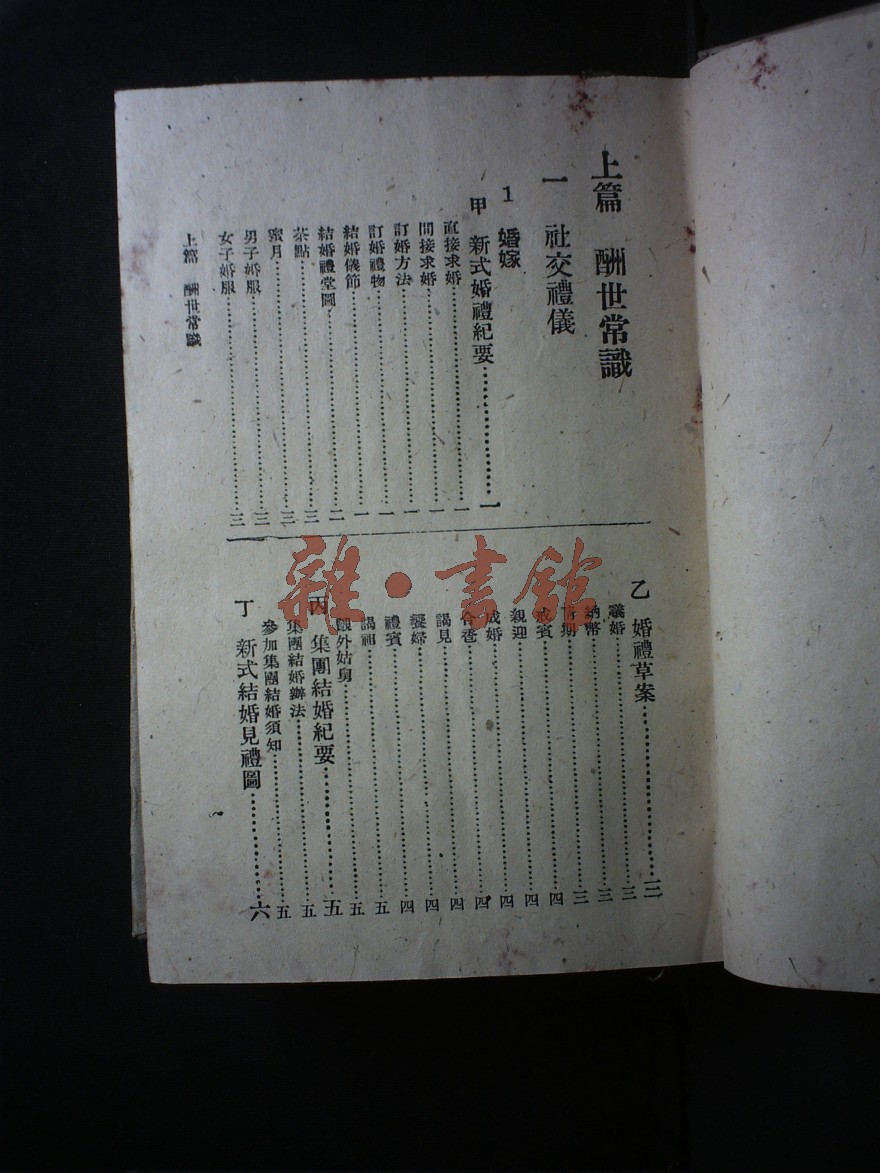 上篇 酬世常識
一 社交禮儀
1 婚嫁
甲 新式婚禮紀要…………一
直接求婚…………一
間接求婚…………一
訂婚方法…………一
訂婚禮物…………一
結婚儀節…………一
結婚禮堂圖…………二
茶點…………三
蜜月…………三
男子婚服…………三
女子婚服…………三
乙 婚禮草案…………三
議婚…………三
納幣…………三
期…………三
戒賓…………四
親迎…………四
成婚…………四
合巹…………四
謁見…………四
饗婦…………四
禮賓…………四
謁祖…………五
觀外姑舅…………五
丙 集團結婚紀要…………五
集團結婚辦法…………五
參加集團結婚須知…………五
丁 新式結婚見禮圖…………六
上篇 酬世常識
雜·書館